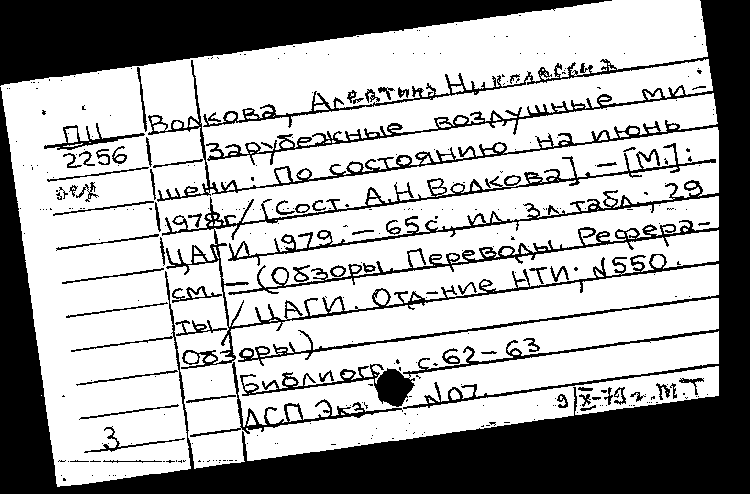 ПШ
2256
Волкова, Алевтина Николаевна
Зарубежные воздушные ми-
шени: По состоянию на июнь
1978г / [Сост. А.Н.Волкова]. – [М.]:
ЦАГИ, 1979. – 65с., ил., 3л.табл.; 29
см. – (Обзоры. Переводы. Рефера-
ты / ЦАГИ. Отд-ние НТИ; №550.
Обзоры).
Библиогр.: с.62–63
ДСП Экз №07.
9/IX-79г. М Т
3